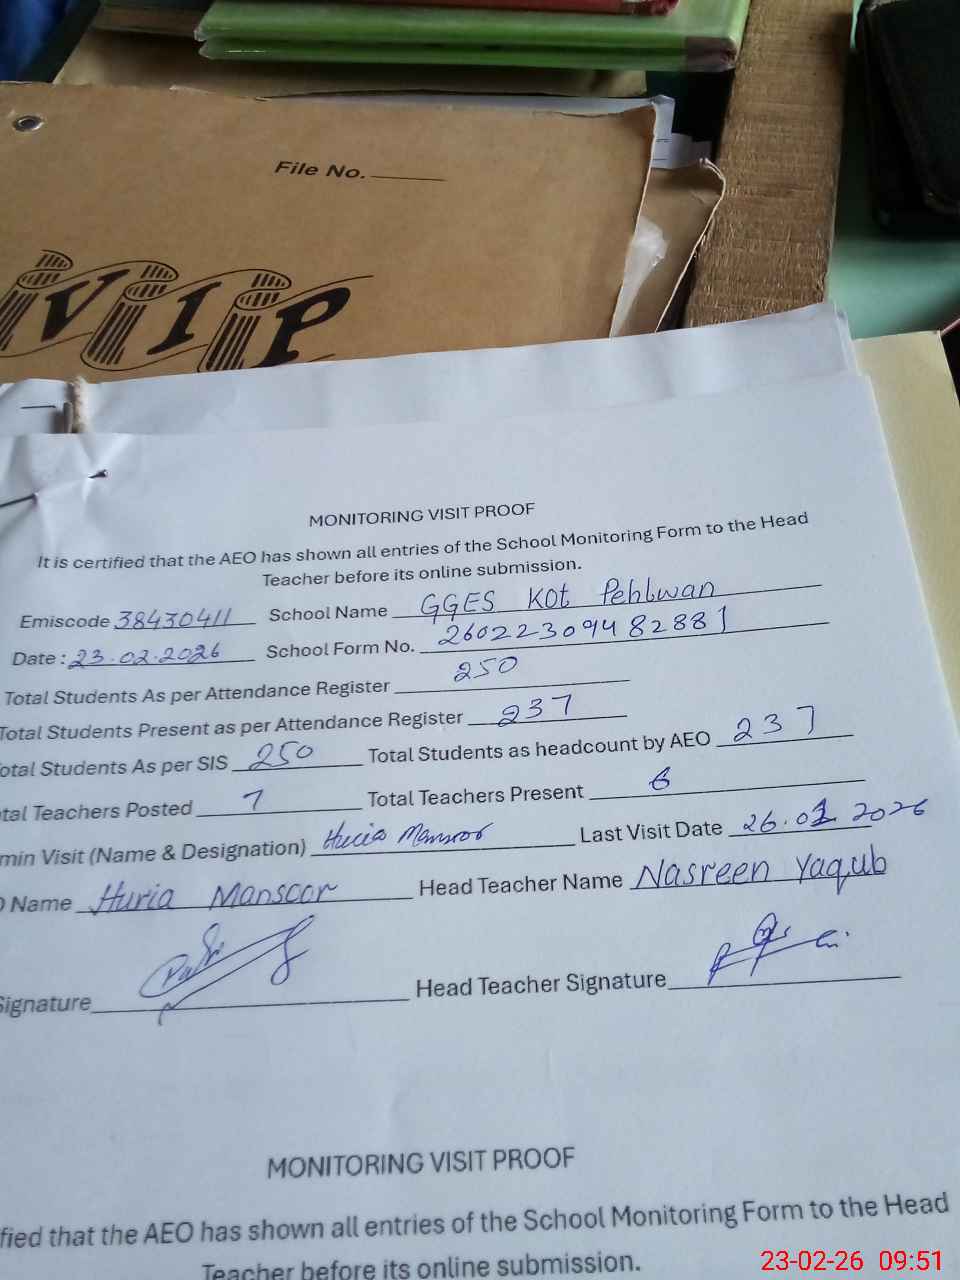 File No.
VIP
MONITORING VISIT PROOF
It is certified that the AEO has shown all entries of the School Monitoring Form to the Head
Teacher before its online submission.
Emiscode 38430411 School Name GGES Kot Pehlwan
Date : 23.02.2026 School Form No. 26022309482881
Total Students As per Attendance Register 250
Total Students Present as per Attendance Register 237
otal Students As per SIS 250 Total Students as headcount by AEO 237
tal Teachers Posted 7 Total Teachers Present 6
min Visit (Name & Designation) Huria Mansoor Last Visit Date 26.01 2026
O Name Huria Mansoor Head Teacher Name Nasreen Yaqub
Signature Head Teacher Signature
MONITORING VISIT PROOF
fied that the AEO has shown all entries of the School Monitoring Form to the Head
Teacher before its online submission.
23-02-26 09:51